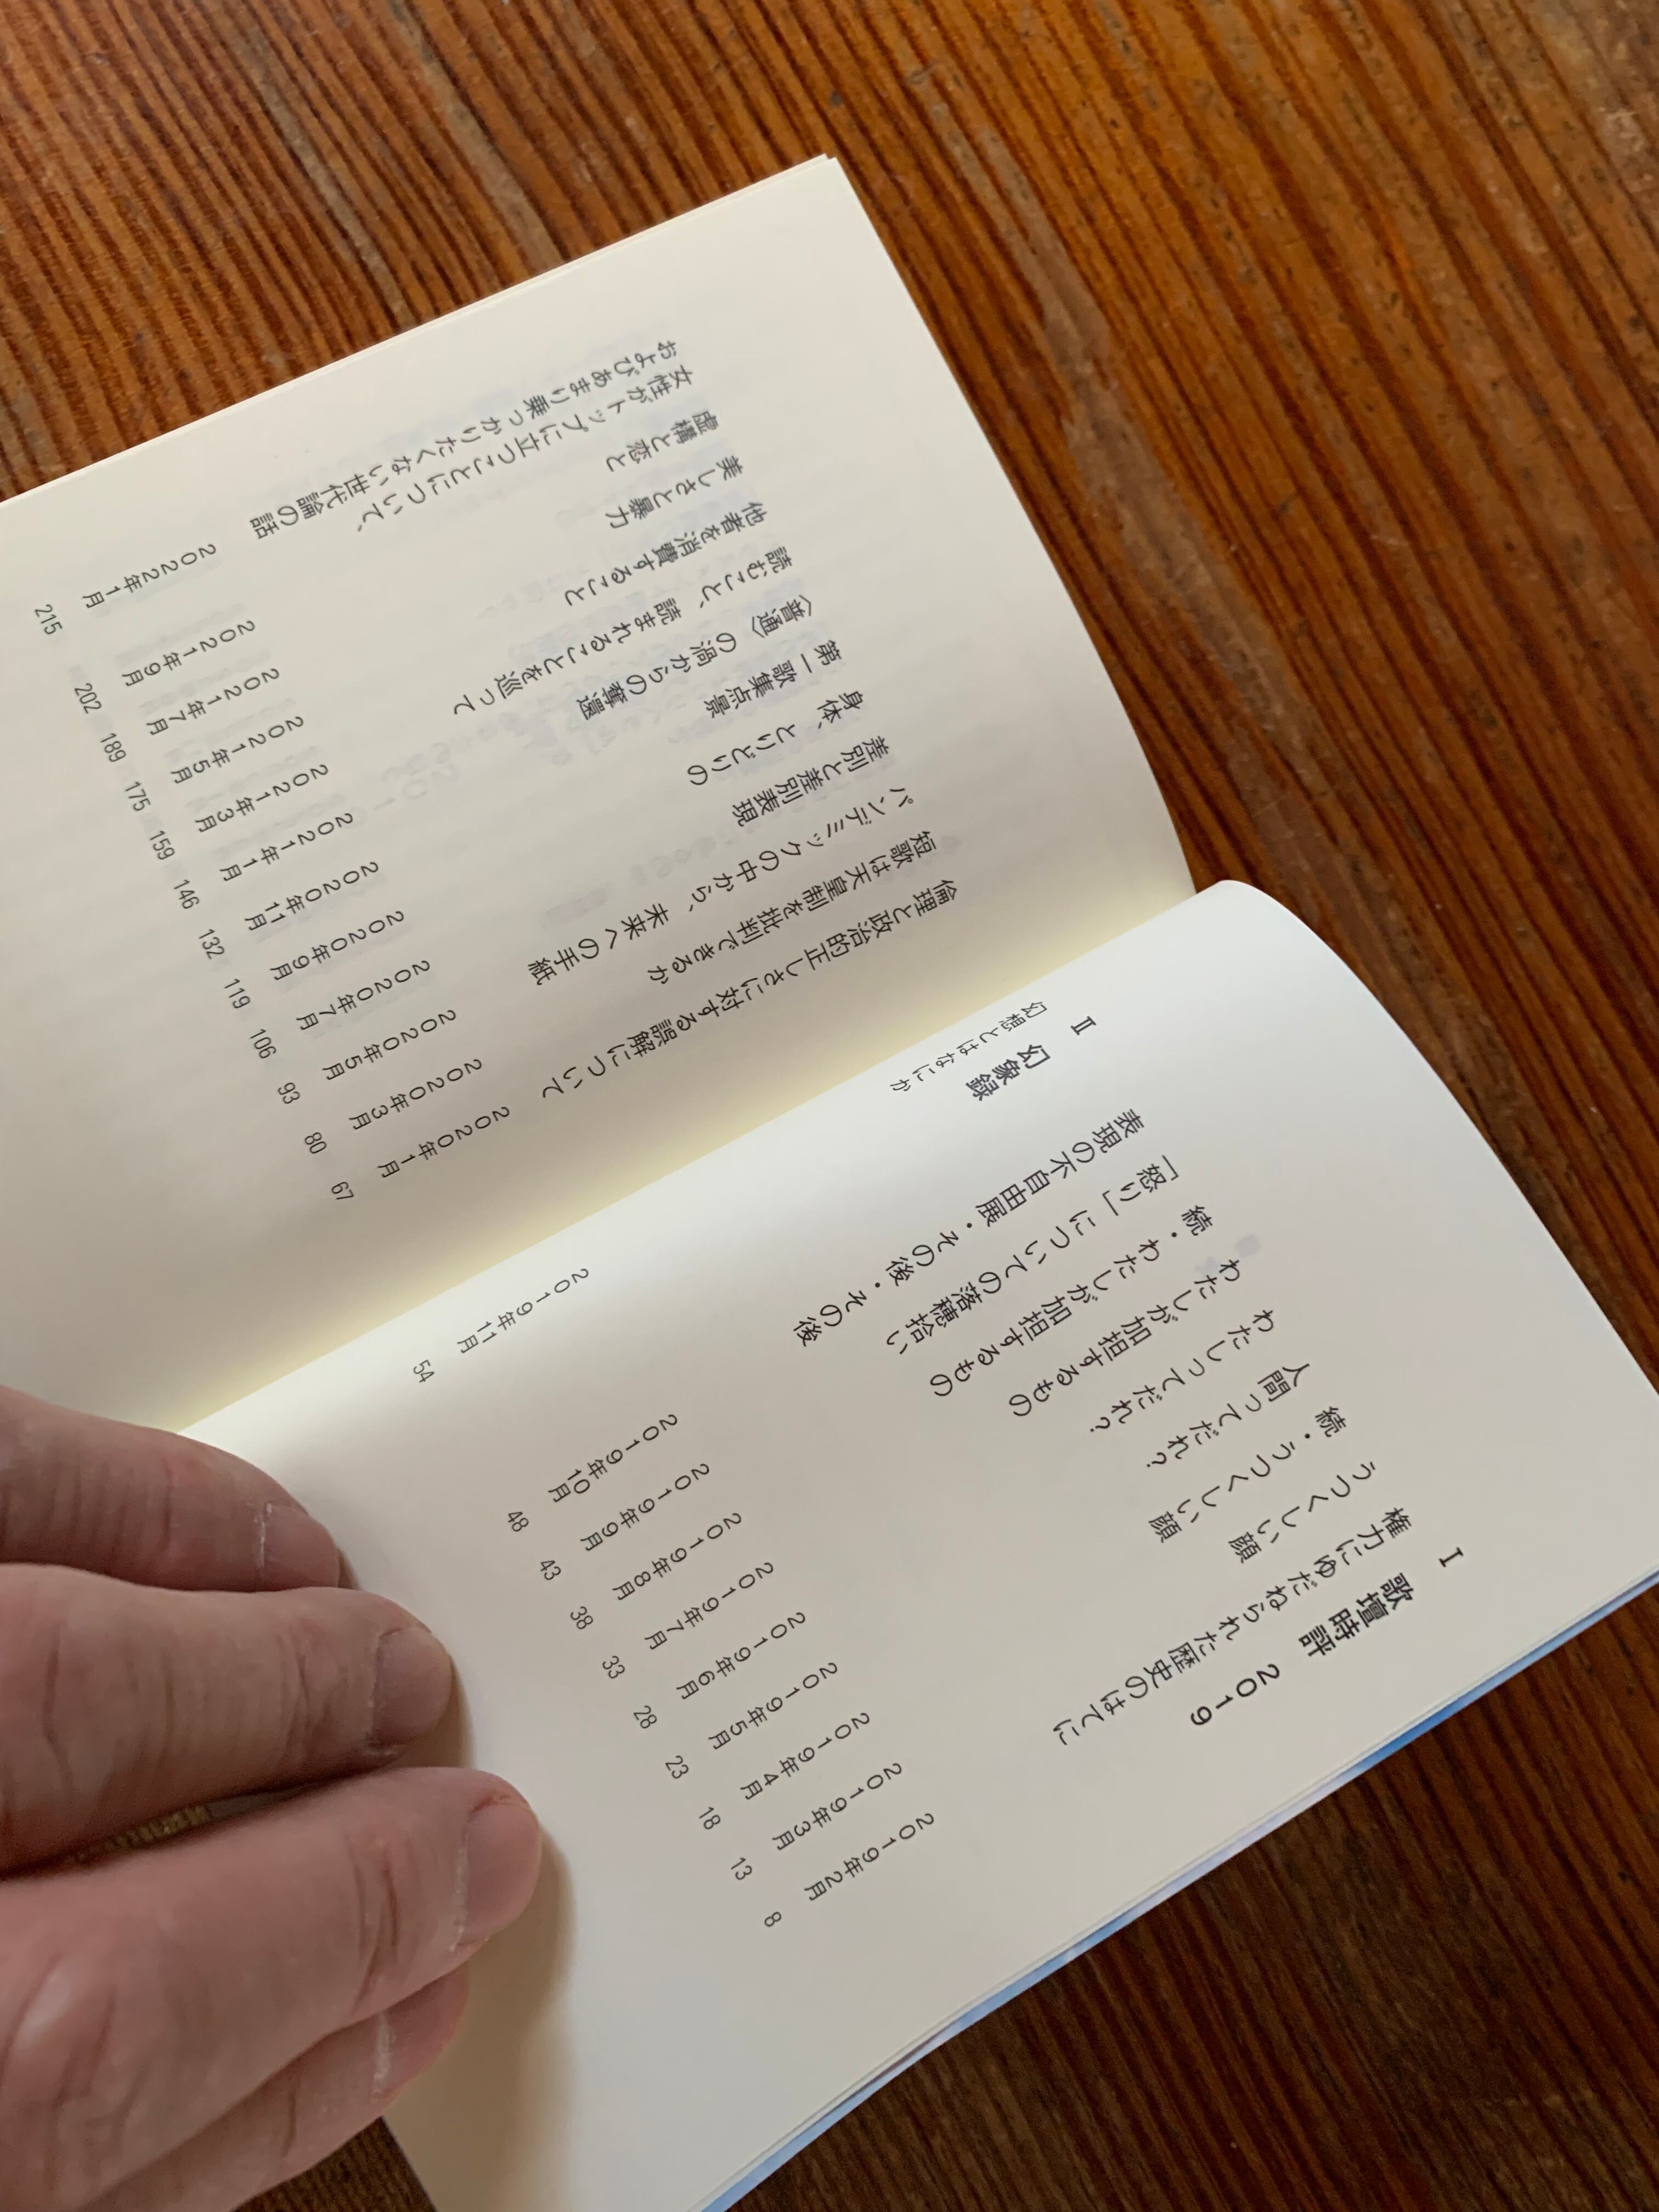 Ⅰ 歌壇時評 2019
権力にゆだねられた歴史のはてに 2019年2月 8
うつくしい顔 2019年3月 13
続・うつくしい顔 2019年4月 18
人間ってだれ? 2019年5月 23
わたしってだれ? 2019年6月 28
わたしが加担するもの 2019年7月 33
続・わたしが加担するもの 2019年8月 38
「怒り」についての落穂拾い 2019年9月 43
表現の不自由展・その後・その後 2019年10月 48
Ⅱ 幻象録
幻想とはなにか 2019年11月 54
倫理と政治的正しさに対する誤解について 2020年1月 67
短歌は天皇制を批判できるか 2020年3月 80
パンデミックの中から、未来への手紙 2020年5月 93
差別と差別表現 2020年7月 106
身体、とりどりの 2020年9月 119
第一歌集点景 2020年11月 132
〈普通〉の渦からの奪還 2021年1月 146
読むこと、読まれることを巡って 2021年3月 159
他者を消費すること 2021年5月 175
美しさと暴力 2021年7月 189
虚構と恋と 2021年9月 202
女性がトップに立つことについて、
およびあまり乗っかりたくない世代論の話 2022年1月 215